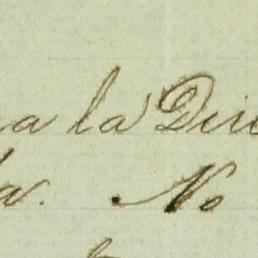 a la Dire
a. No